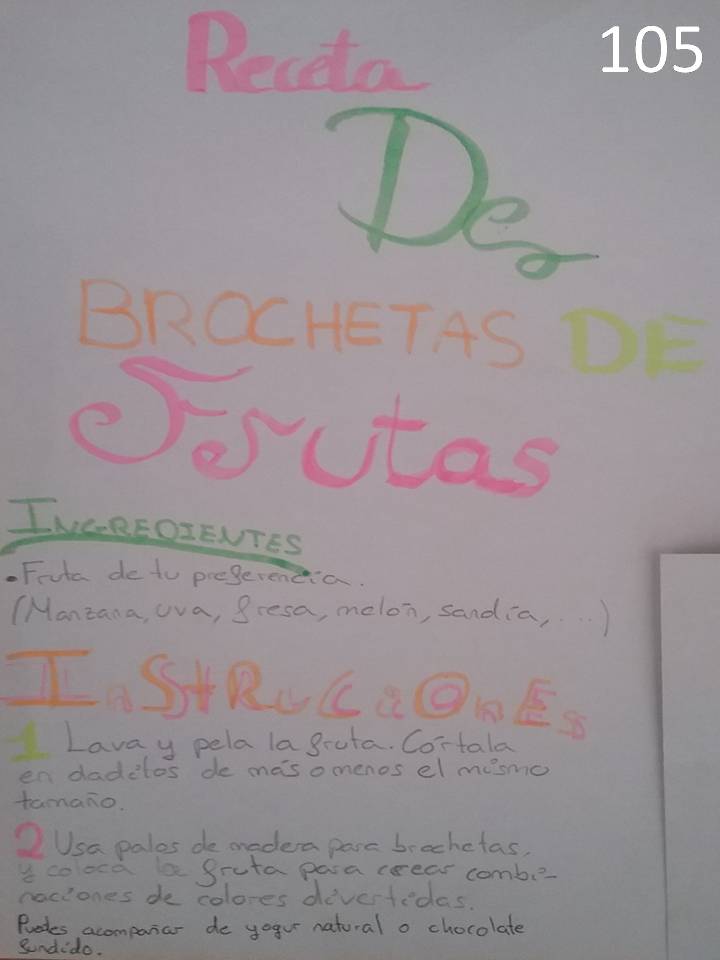 105
Receta
De
BROCHETAS DE
Frutas
INGREDIENTES
• Fruta de tu preferencia.
(Manzana, uva, fresa, melón, sandía, ....)
InSTRucciOnEs
1 Lava y pela la fruta. Córtala
en daditos de más o menos el mismo
tamaño.
2 Usa palos de madera para brochetas,
y coloca la fruta para crear combi-
naciones de colores divertidas.
Puedes acompañar de yogur natural o chocolate
fundido.